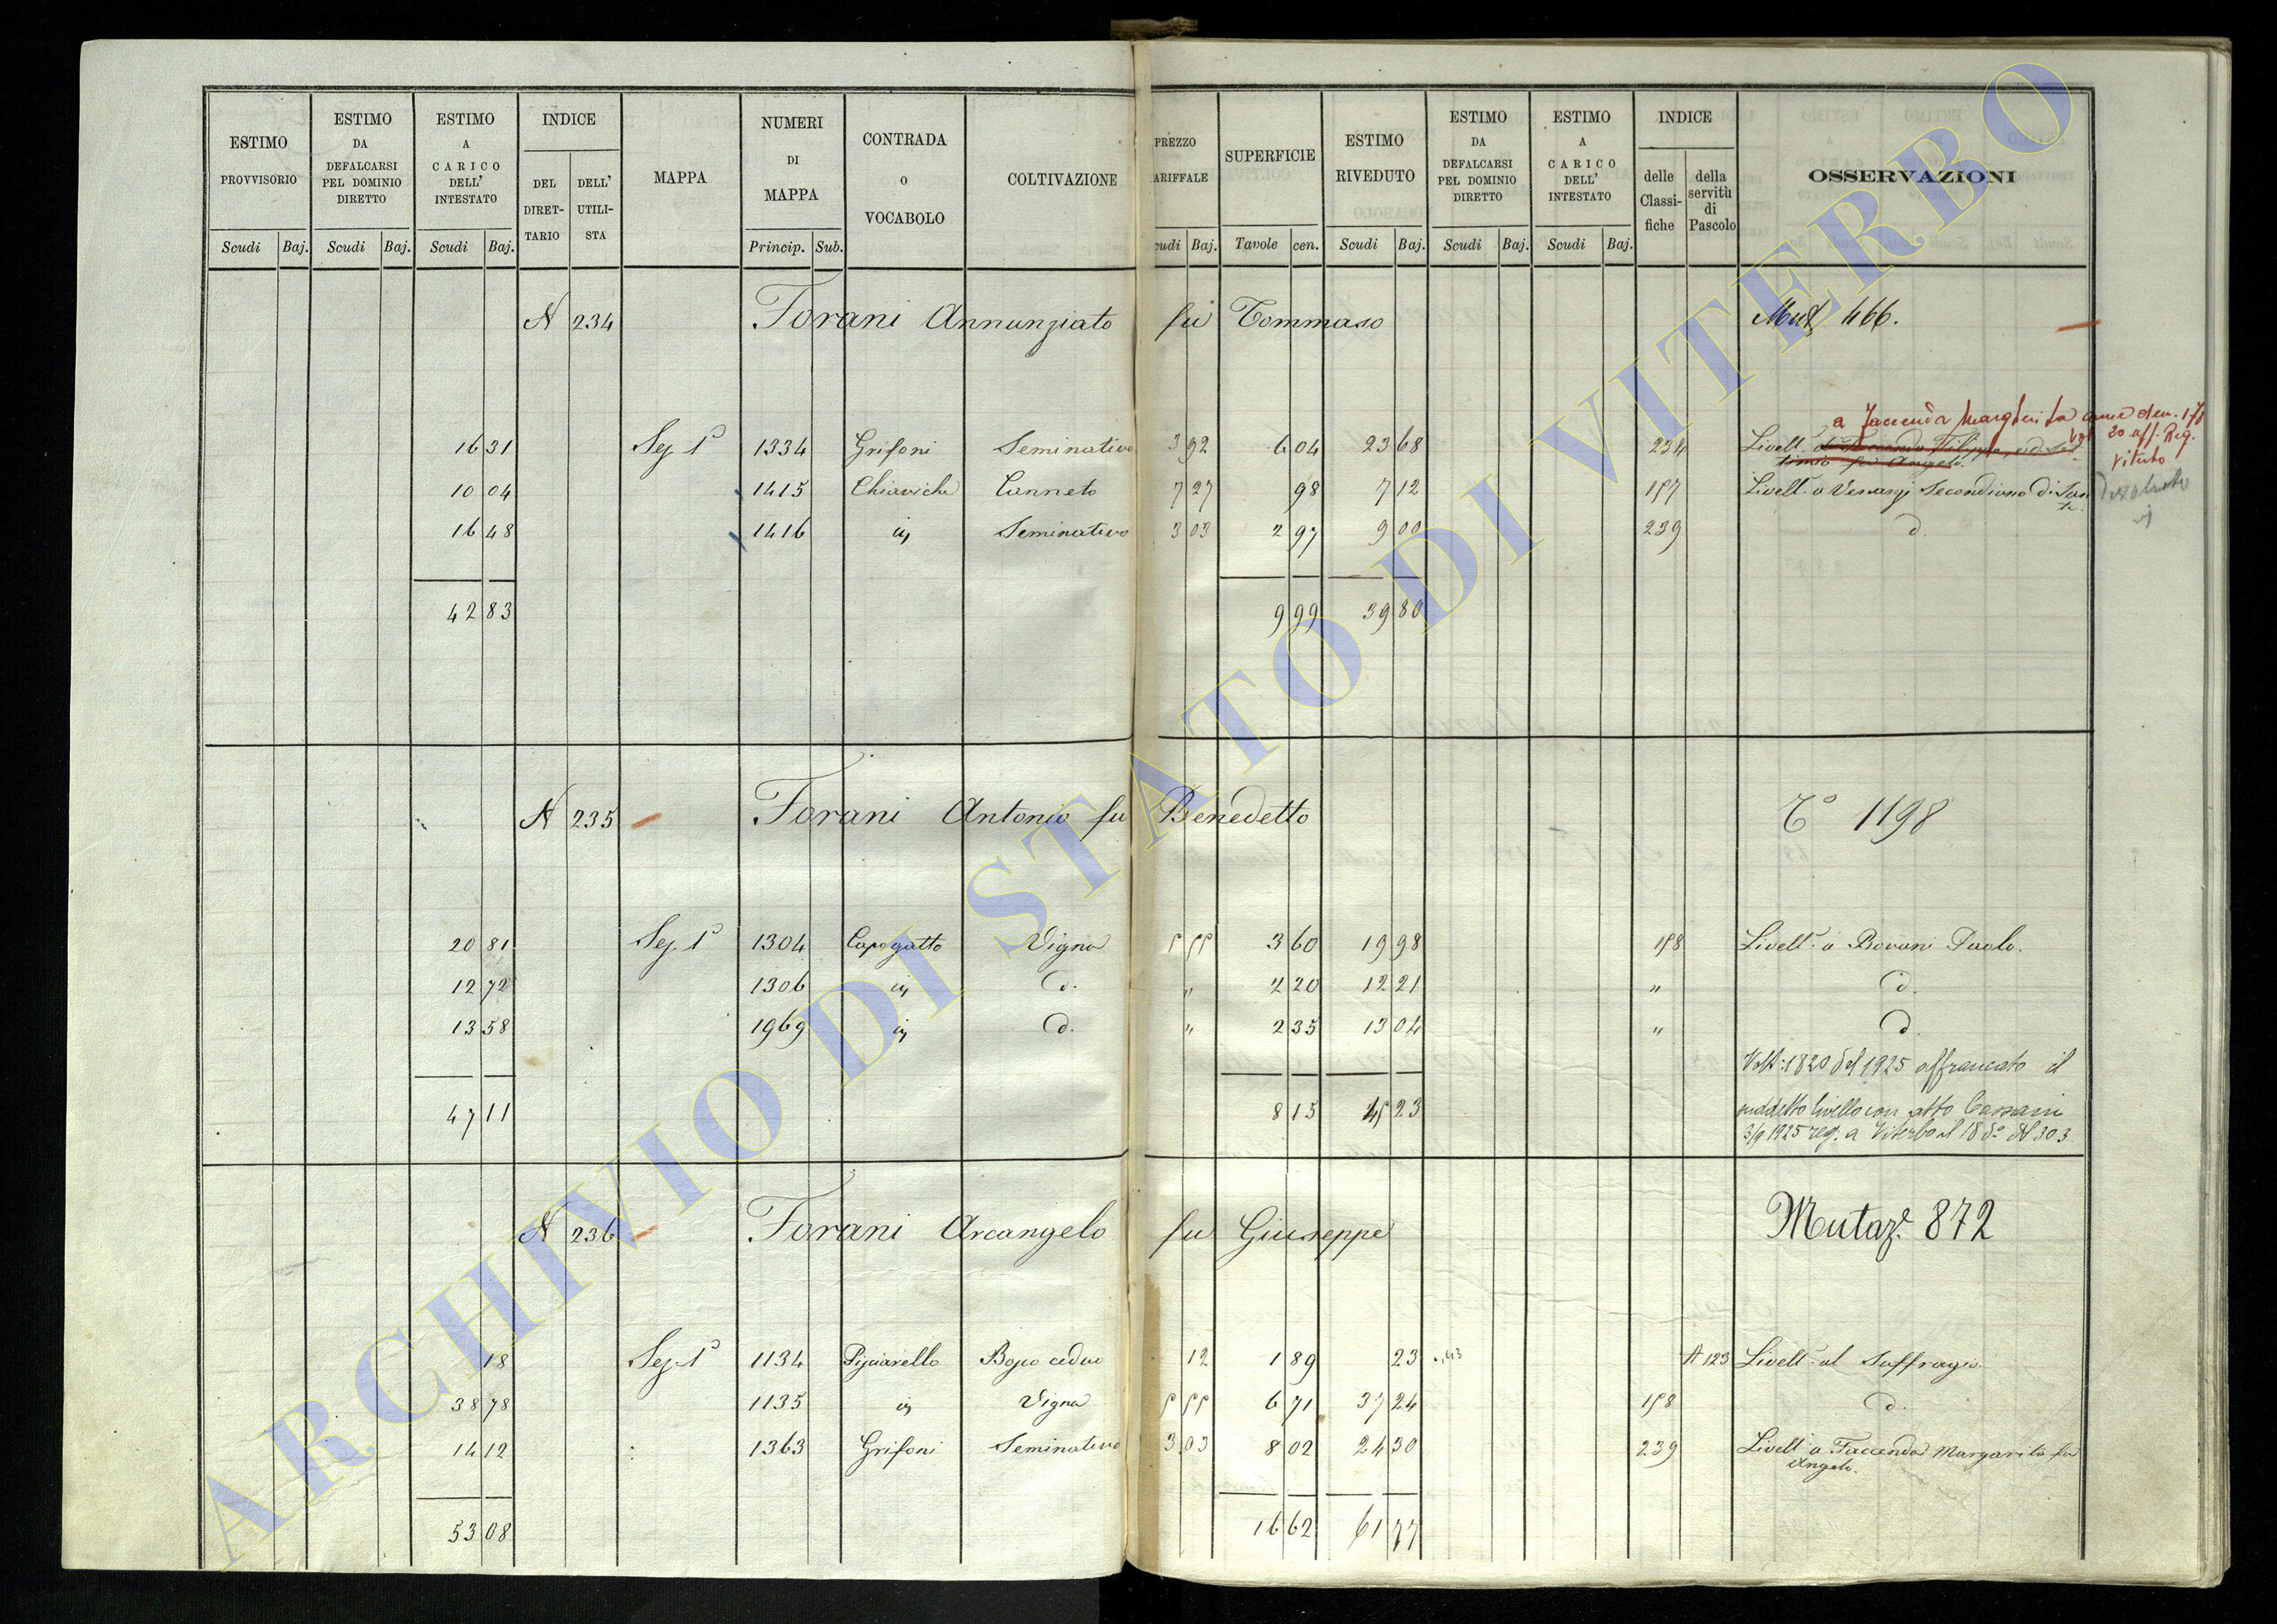 ESTIMO PROVVISORIO
ESTIMO DA DEFALCARSI PEL DOMINIO DIRETTO
ESTIMO A CARICO DELL' INTESTATO
INDICE
DEL DIRETTARIO
DELL' UTILISTA
MAPPA
NUMERI DI MAPPA
CONTRADA O VOCABOLO
COLTIVAZIONE
PREZZO
ARIFFALE
SUPERFICIE
ESTIMO RIVEDUTO
ESTIMO DA DEFALCARSI PEL DOMINIO DIRETTO
ESTIMO A CARICO DELL' INTESTATO
INDICE
delle Classifiche
della servitù di Pascolo
OSSERVAZIONI
Scudi Baj. Scudi Baj. Scudi Baj. Princip. Sub. cudi Baj. Tavole cen. Scudi Baj. Scudi Baj. Scudi Baj.
N 234 Forani Annunziato fu Tommaso Mut. 466.
a Faccenda Margherita
16 31 Sez 1ª 1334 Grifoni Seminativo 3 92 6 04 23 68 234 Livell.
20 aff. Reg. Viterbo
10 04 1415 Chiaviche Canneto 7 27 98 7 12 157 Livell. a Venanzi Secondiano di
16 48 1416 Seminativo 3 03 2 97 9 00 239 d.
42 83 9 99 39 80
N 235 Forani Antonio fu Benedetto 1198
20 81 Sez 1ª 1304 Capogatto Vigna 5 55 3 60 19 98 158 Livell. a Bovani Paolo.
12 72 1306 d. " 2 20 12 21 " d.
13 58 1969 d. " 2 35 13 04 " d.
Volt: 1820 del 1925 affrancato il
47 11 8 15 45 23 suddetto livello con atto Cassani
3/9 1925 reg. a Viterbo il 18 do N 303
N 236 Forani Arcangelo fu Giuseppe Mutaz. 872
18 Sez 1ª 1134 Pisciarello Bosco ceduo 12 1 89 23 .,43 A 123 Livell. al Suffragio
38 78 1135 Vigna 5 55 6 71 37 24 158 d.
14 12 1363 Grifoni Seminativo 3 03 8 02 24 30 239 Livell. a Faccenda Margarita fu
Angelo.
53 08 16 62 61 77
ARCHIVIO DI STATO DI VITERBO